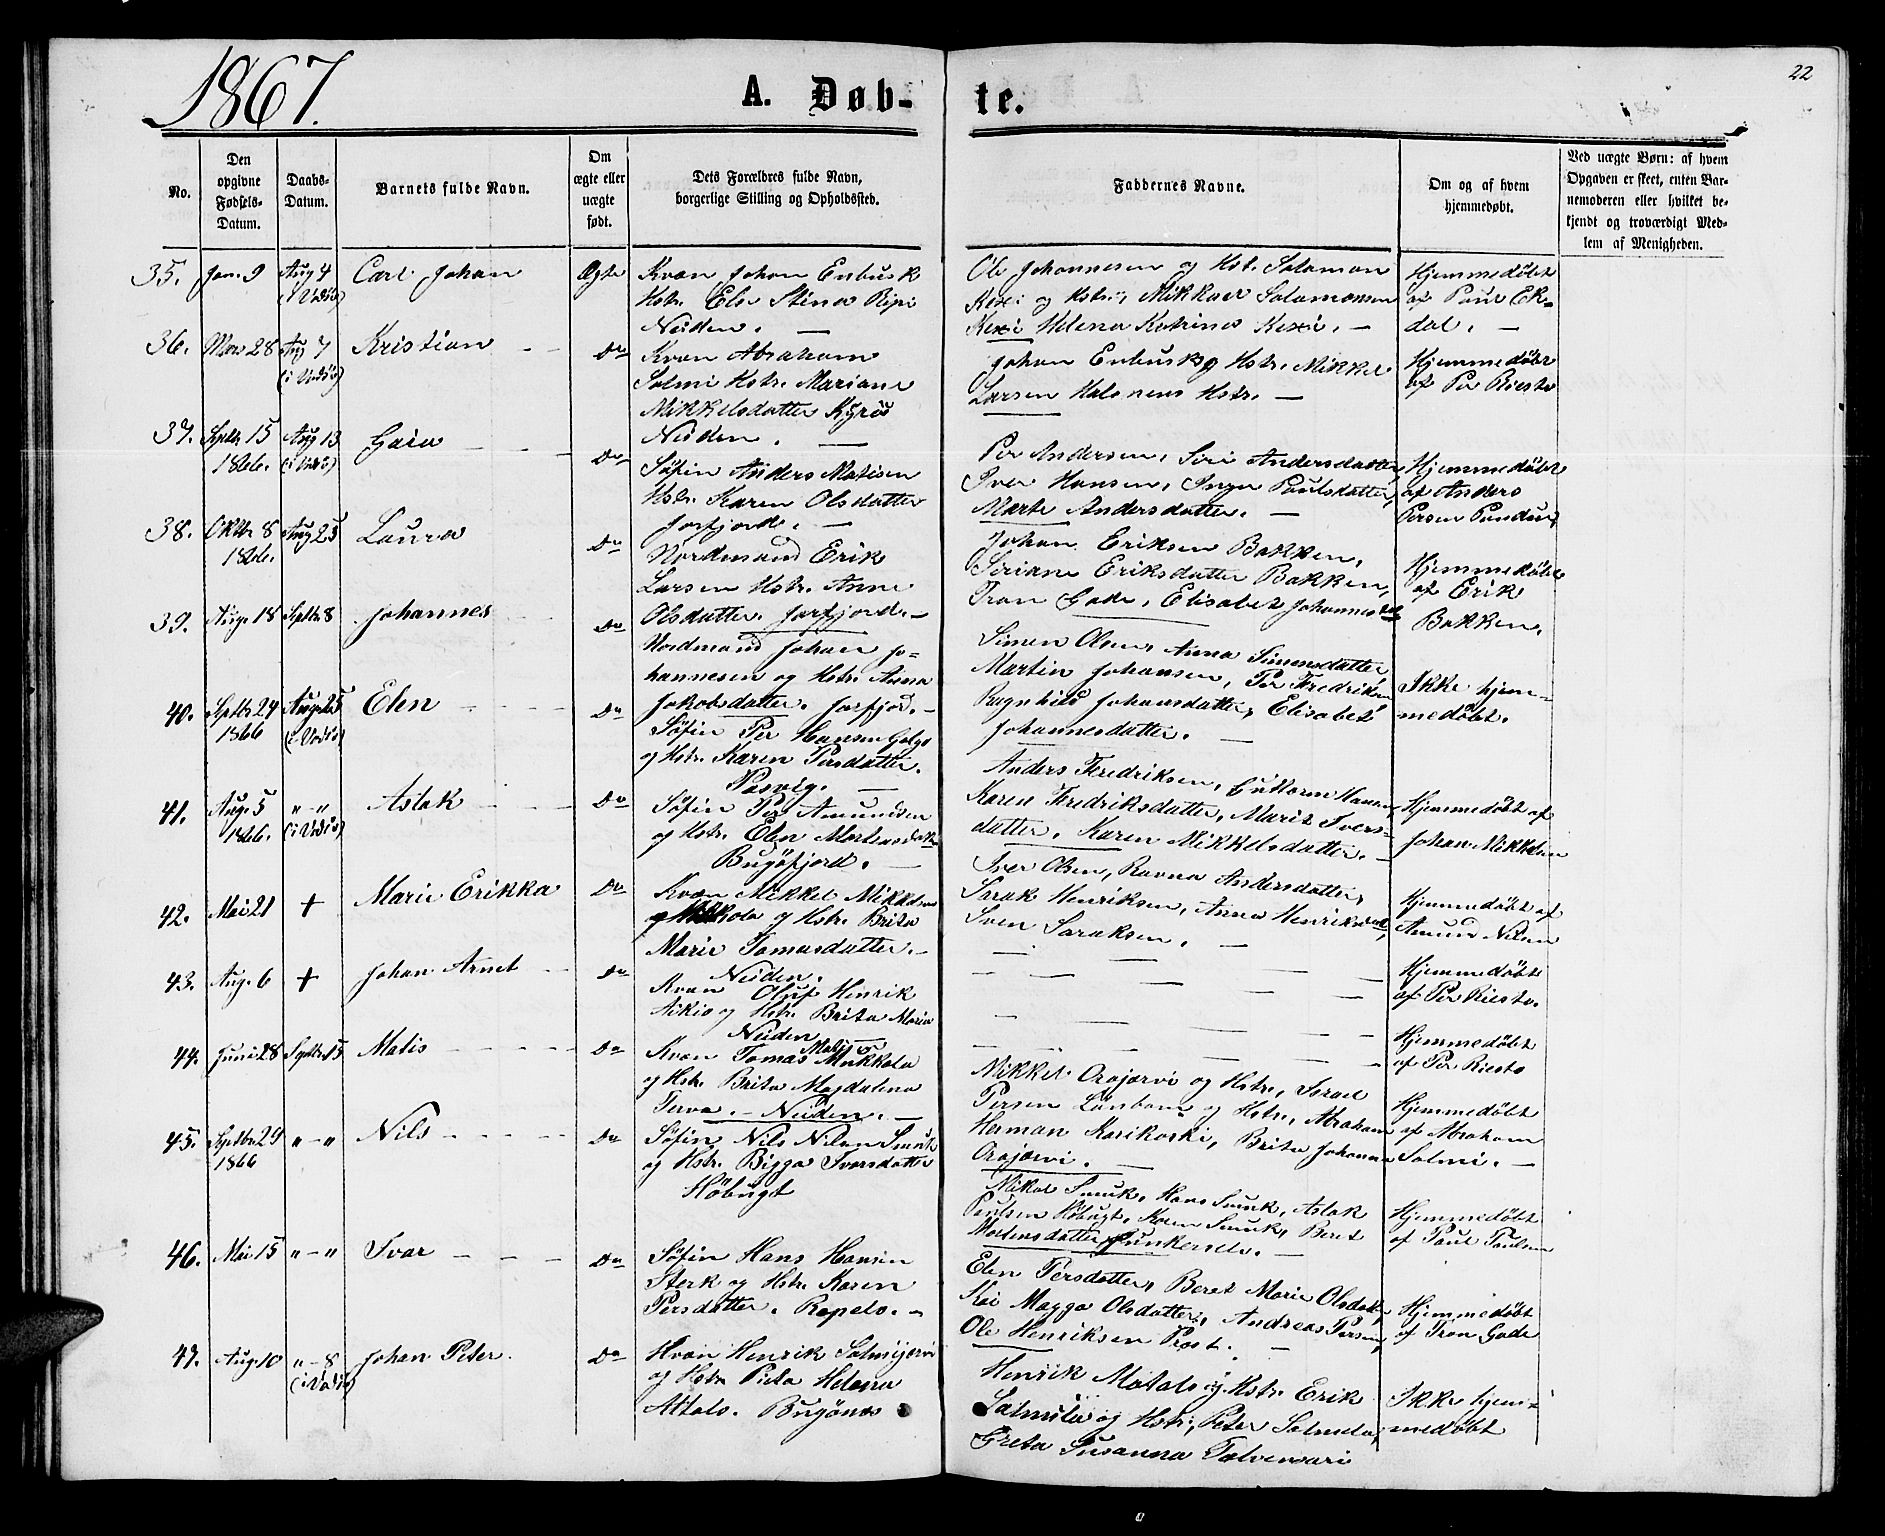 22
1867.
A. Døb-
te.
No.
Den opgivne Fødsels-Datum.
Daabs-Datum.
Barnets fulde Navn.
Om ægte eller uægte født.
Dets Forældres fulde Navn, borgerlige Stilling og Opholdssted.
Faddernes Navne.
Om og af hvem hjemmedøbt.
Ved uægte Børn: af hvem Opgaven er skeet, enten Barnemoderen eller hvilket bekjendt og troværdigt Medlem af Menigheden.
35. Jan. 9 Aug 4 (i Vadsø) Carl Johan Ægte
Kvæn Johan Enbusk
Hstr. Els Stina
Neiden. —
Ole Johannesen og Hstr. Salamon
Kexi og Hstr., Mikkael Salamonsen
Kexi Helena Katrina Kexi. —
Hjemmedøbt
af Paul Ek-
dal. —
36. Mars 28 Aug 7 (i Vadsø) Kristian Do
Kvæn Abraham
Salmi Hstr. Mariane
Mikkelsdatter Kyrø
Neiden. —
Johan Enbusk og Hstr. Mikkel
Larsen Halonens Hstr. —
Hjemmedøbt
af Per Riesto
37. Septbr 15 1866. Aug 13 (i Vadsø) Do
Søfin Anders Matisen
Hstr. Karen Olsdatter
Jarfjord. —
Per Andersen, Siri Andersdatter,
Iver Hansen, Inga Paulsdatter,
Marte Andersdatter. —
Hjemmedøbt
af Anders
Persen
38. Oktbr 8 1866. Aug 25 Laura Do
Nordmand Erik
Larsen Hstr. Anne
Olsdatter. Jarfjord. —
Johan Eriksen Bakken,
Siriane Eriksdatter Bakken,
Tron Gade, Elisabet Johannesdtr
Hjemmedøbt
af Erik
Bakken.
39. Aug. 18 Septbr 8 Johannes Do
Nordmand Johan Jo-
hannesen og Hstr. Anna
Jakobsdatter. Jarfjord. —
Simen Olsen, Anna Simensdatter
Martin Johansen, Per Fredriksen
Ragnhild Johansdatter, Elisabet
Johannesdatter. —
Ikke hjem-
medøbt.
40. Septbr 24 1866 Aug. 25 (i Vadsø) Elen Do
Søfin Per Hansen
og Hstr. Karen Persdatter.
Pasvig. —
Anders Fredriksen, Guttorm Hansen,
Karen Fredriksdatter, Marit Ivers-
datter. Karen Mikkelsdatter. —
Hjemmedøbt af
Johan Mikkelsen
41. Aug. 5 1866. „ – „ (i Vadsø) Aslak Do
Søfin Per Amundsen
og Hstr. Elen Mortensdatter
Bugøfjord. —
Iver Olsen, Ravna Andersdatter,
Sarak Henriksen, Anna Henriksdtr,
Sven Saraksen. —
Hjemmedøbt af
Amund Nilsen
42. Mai 21 + Marie Erikka Do
Kvæn Mikkel Mikkelsen
Makkola og Hstr. Brita
Marie Tomasdatter. —
Neiden.
Hjemmedøbt
af Per Riesto.
43. Aug. 6 + Johan Arnet Do
Kvæn Oluf Henrik
Aikio og Hstr. Brita Maria
Neiden
Hjemmedøbt
af Per Riesto
44. Juni 28 Septbr. 15 Matis Do
Kvæn Tomas Matis Makkola
og Hstr. Brita Magdalena
Terva. — Neiden. —
Mikkel Orajærvi og Hstr., Israel
Persen og Hstr., Abraham
Herman Karikoski, Brita Johanna
Orajærvi. —
Hjemmedøbt
af Abraham
Salmi. —
45. Septbr 29 1866 „ – „ Nils Do
Søfin Nils Nilsen Smuk
og Hstr. Bigga Iversdatter
Høbugt
Nikol Smuk, Hans Smuk, Aslak
Paulsen Høbugt, Karen Smuk, Beret
Mortensdatter. —
Hjemmedøbt
af Paul Paulsen
46. Mai 15 „ – „ Ivar Do
Søfin Hans Hansen
Sterk og Hstr. Karen
Persdatter. —
Elen Persdatter, Beret Marie Olsdatt,
Magga Olsdatter, Andreas Persen,
Ole Henriksen Prost. —
Hjemmedøbt
af Tron Gade
47. Aug. 10 „ – 8 (i Vadsø) Johan Peter Do
Kvæn Henrik Salmijærvi
og Hstr. Helena
Bugønæs
Henrik Matala og Hstr. Erik
Salmila og Hstr., Peter Salmela,
Greta Susanna
Ikke hjem-
medøbt